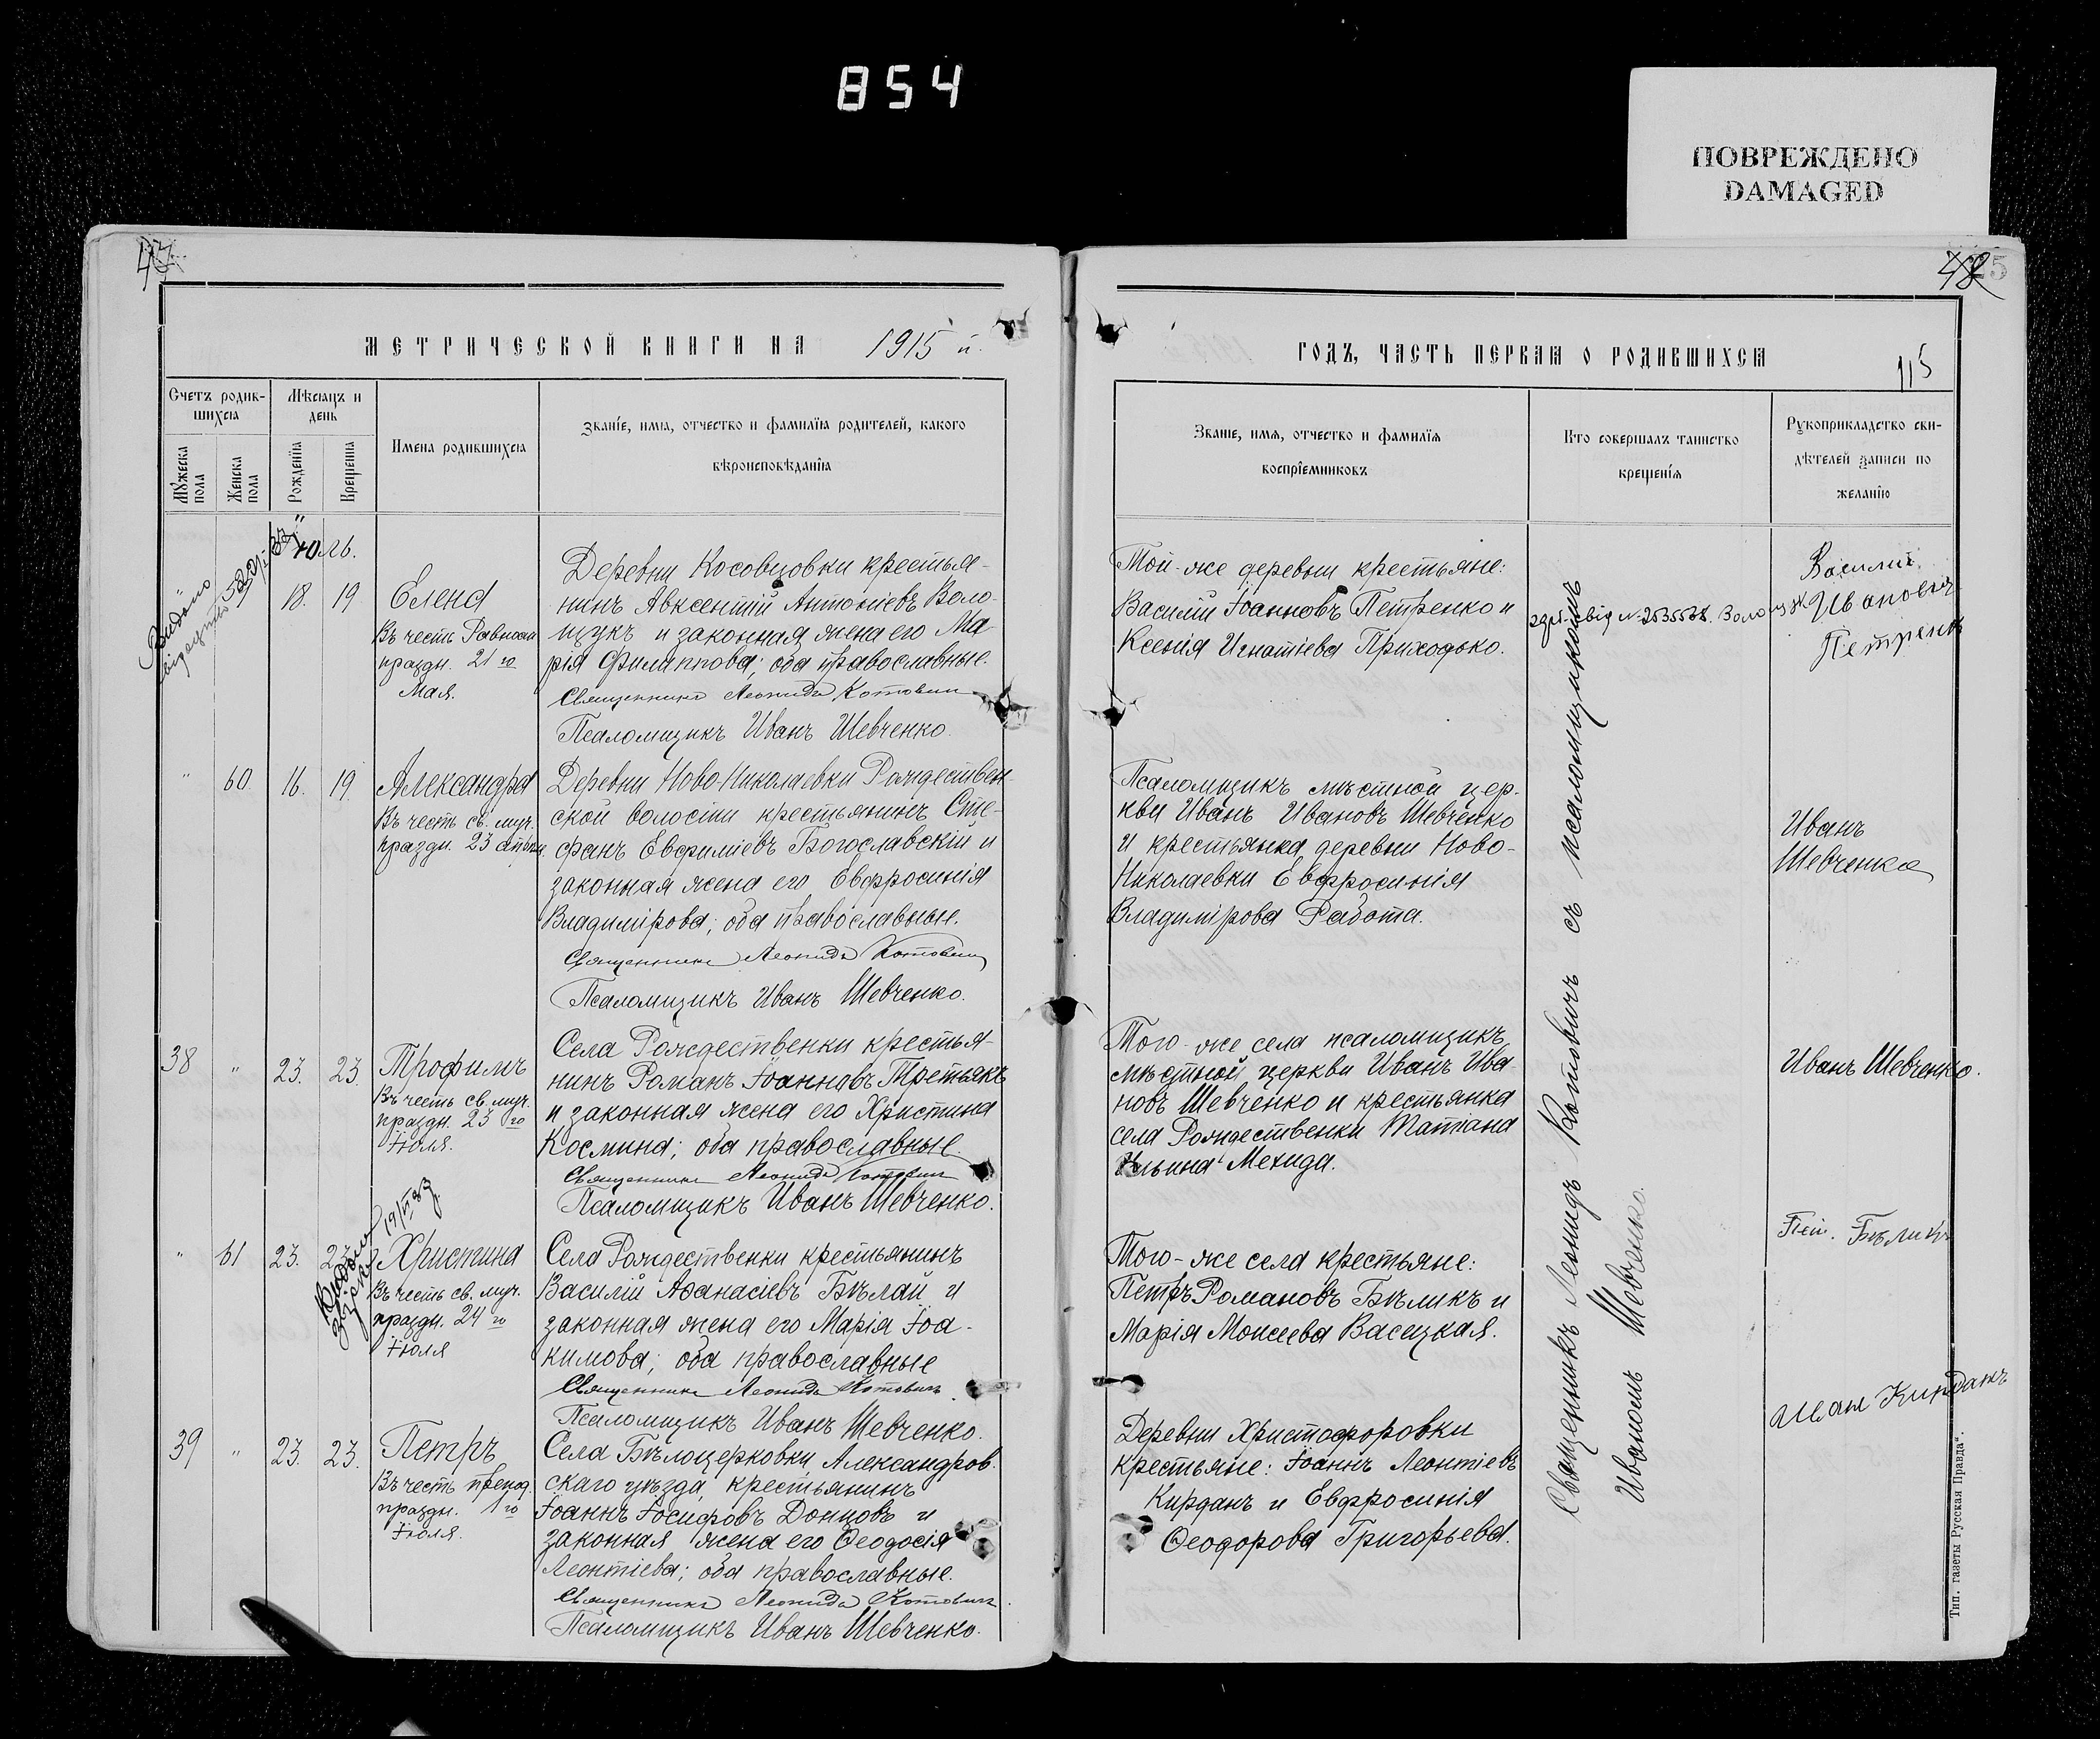 854
ПОВРЕЖДЕНО
DAMAGED
МЕТРИЧЕСКОЙ КНИГИ НА 1915 й.
Счетъ родившихся
Мѣсяцъ и день
Имена родившихся
Званіе, имя, отчество и фамилія родителей, какого
вѣроисповѣданія
Мужеска пола
Женска пола
Рожденія
Крещенія
Юль.
18. 19
Елена
Въ честь Равноап
праздн. 21 го
Мая.
Деревни Косовцовки крестья-
нинъ Авксентій Антоніевъ Воло-
щукъ и законная жена его Ма-
рія Филиппова; оба православные.
Священникъ Леонидъ Котовичъ
Псаломщикъ Иванъ Шевченко.
" 60. 16. 19.
Александра
Въ честь св. муч.
праздн. 23 апрѣля.
Деревни Ново-Николаевки Рождествен-
ской волости крестьянинъ Сте-
фанъ Евфиміевъ Богославскій и
законная жена его Евфросинія
Владимірова; оба православные.
Священникъ Леонидъ Котовичъ
Псаломщикъ Иванъ Шевченко.
38 " 23. 23.
Трофимъ
Въ честь св. муч.
праздн. 23 го
Іюля.
Села Рождественки крестья-
нинъ Романъ Іоанновъ Третьякъ
и законная жена его Христина
Космина; оба православные.
Священникъ Леонидъ Котовичъ
Псаломщикъ Иванъ Шевченко.
" 61 23. 23
Христина
Въ честь св. муч.
праздн. 24 го
Іюля
Села Рождественки крестьянинъ
Василій Аѳанасіевъ Бѣлай и
законная жена его Марія Іоа-
кимова; оба православные
Священникъ Леонидъ Котовичъ
Псаломщикъ Иванъ Шевченко.
39 " 23. 23.
Петръ
Въ честь препод.
праздн. 1 го
Іюля.
Села Бѣлоцерковки Александров.
скаго уѣзда крестьянинъ
Іоаннъ Іосифовъ Донцовъ и
законная жена его Ѳеодосія
Леонтіева; оба православные.
Священникъ Леонидъ Котовичъ.
Псаломщикъ Иванъ Шевченко.
48
ГОДЪ, ЧАСТЬ ПЕРВАЯ О РОДИВШИХСЯ
115
Званіе, имя, отчество и фамилія
воспріемниковъ
Кто совершалъ таинство
крещенія
Рукоприкладство сви-
дѣтелей записи по
желанію
Той-же деревни крестьяне:
Василій Іоанновъ Петренко и
Ксенія Игнатіева Приходько.
Василій
Ивановъ
Петренко
Псаломщикъ мѣстной цер-
кви Иванъ Ивановъ Шевченко
и крестьянка деревни Ново-
Николаевки Евфросинія
Владимірова Работа.
Иванъ
Шевченко
Того-же села псаломщикъ
мѣстной церкви Иванъ Ива-
новъ Шевченко и крестьянка
села Рождественки Татіана
Ильина Мехида.
Иванъ Шевченко.
Того-же села крестьяне:
Петръ Романовъ Бѣликъ и
Марія Моисеева Васецкая.
Пет. Бѣликъ
Деревни Христофоровки
крестьяне: Іоаннъ Леонтіевъ
Кирданъ и Евфросинія
Ѳеодорова Григорьева.
Иван Кирданъ
Священникъ Леонидъ Котовичъ съ псаломщикомъ
Иваномъ Шевченко.
Тип. газеты „Русская Правда“.